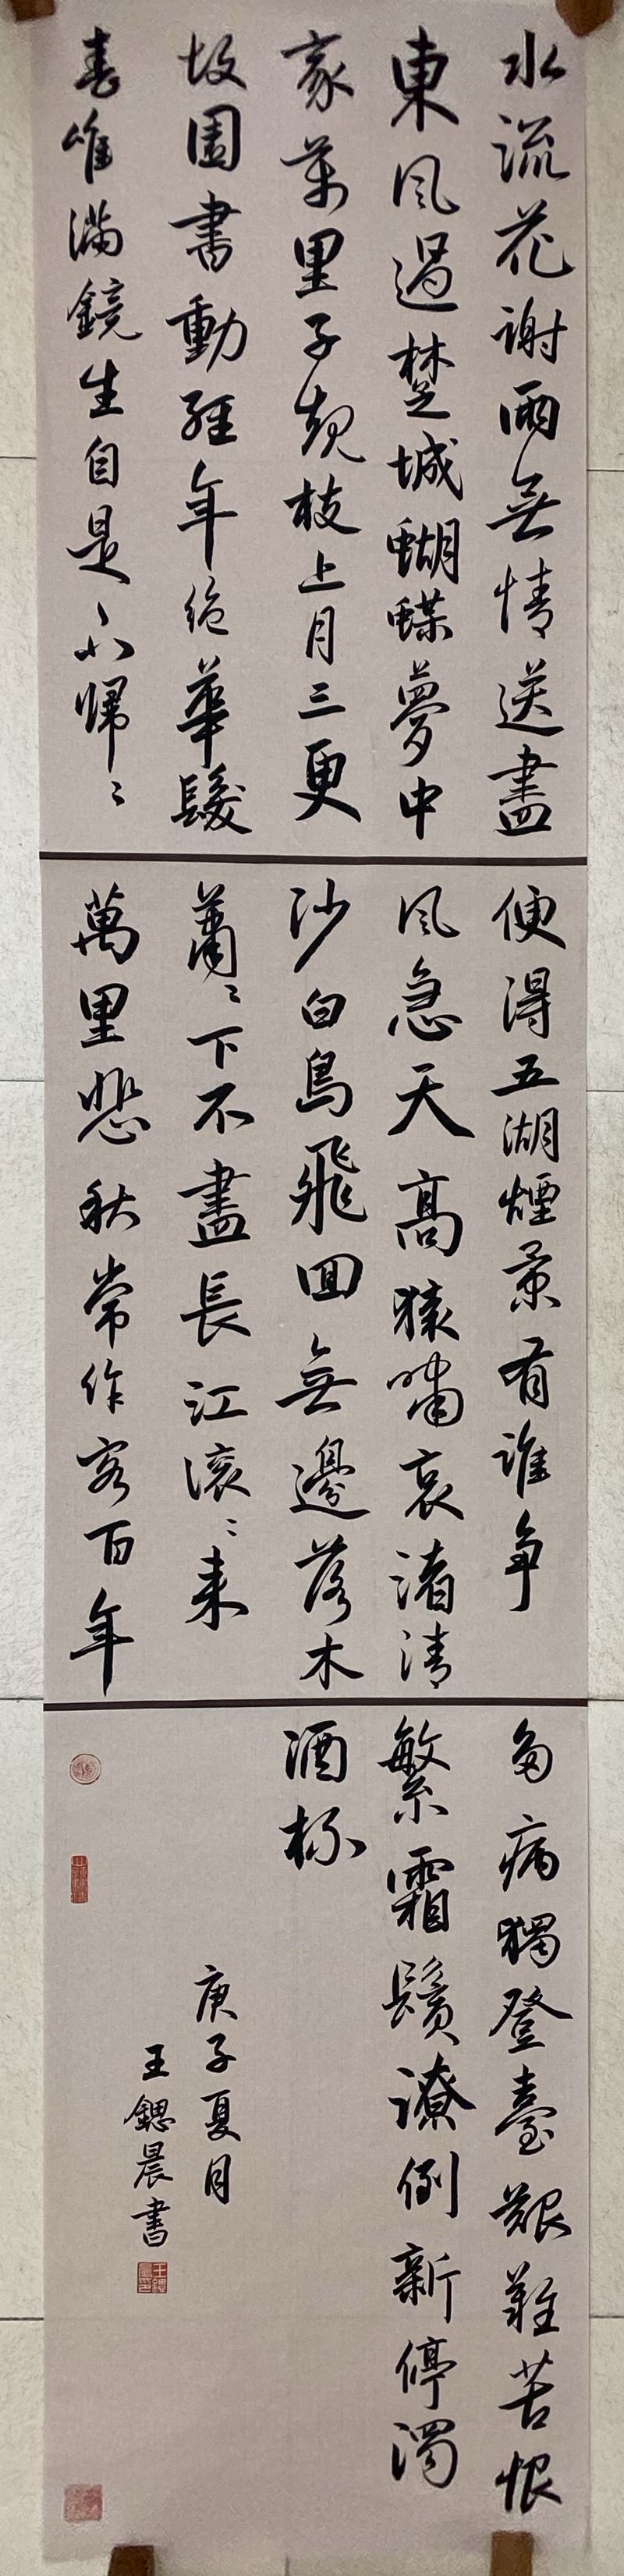 水流花谢兩無情送盡
東風過楚城蝴蝶夢中
家萬里子規枝上月三更
故園書動經年絕華髮
春唯滿鏡生自是不歸〻
便得五湖煙景有誰爭
風急天高猿嘯哀渚清
沙白鳥飛回無邊落木
蕭〻下不盡長江滾〻来
萬里悲秋常作客百年
多病獨登臺艱難苦恨
繁霜鬢潦倒新停濁
酒杯
庚子夏月
王鍶晨書